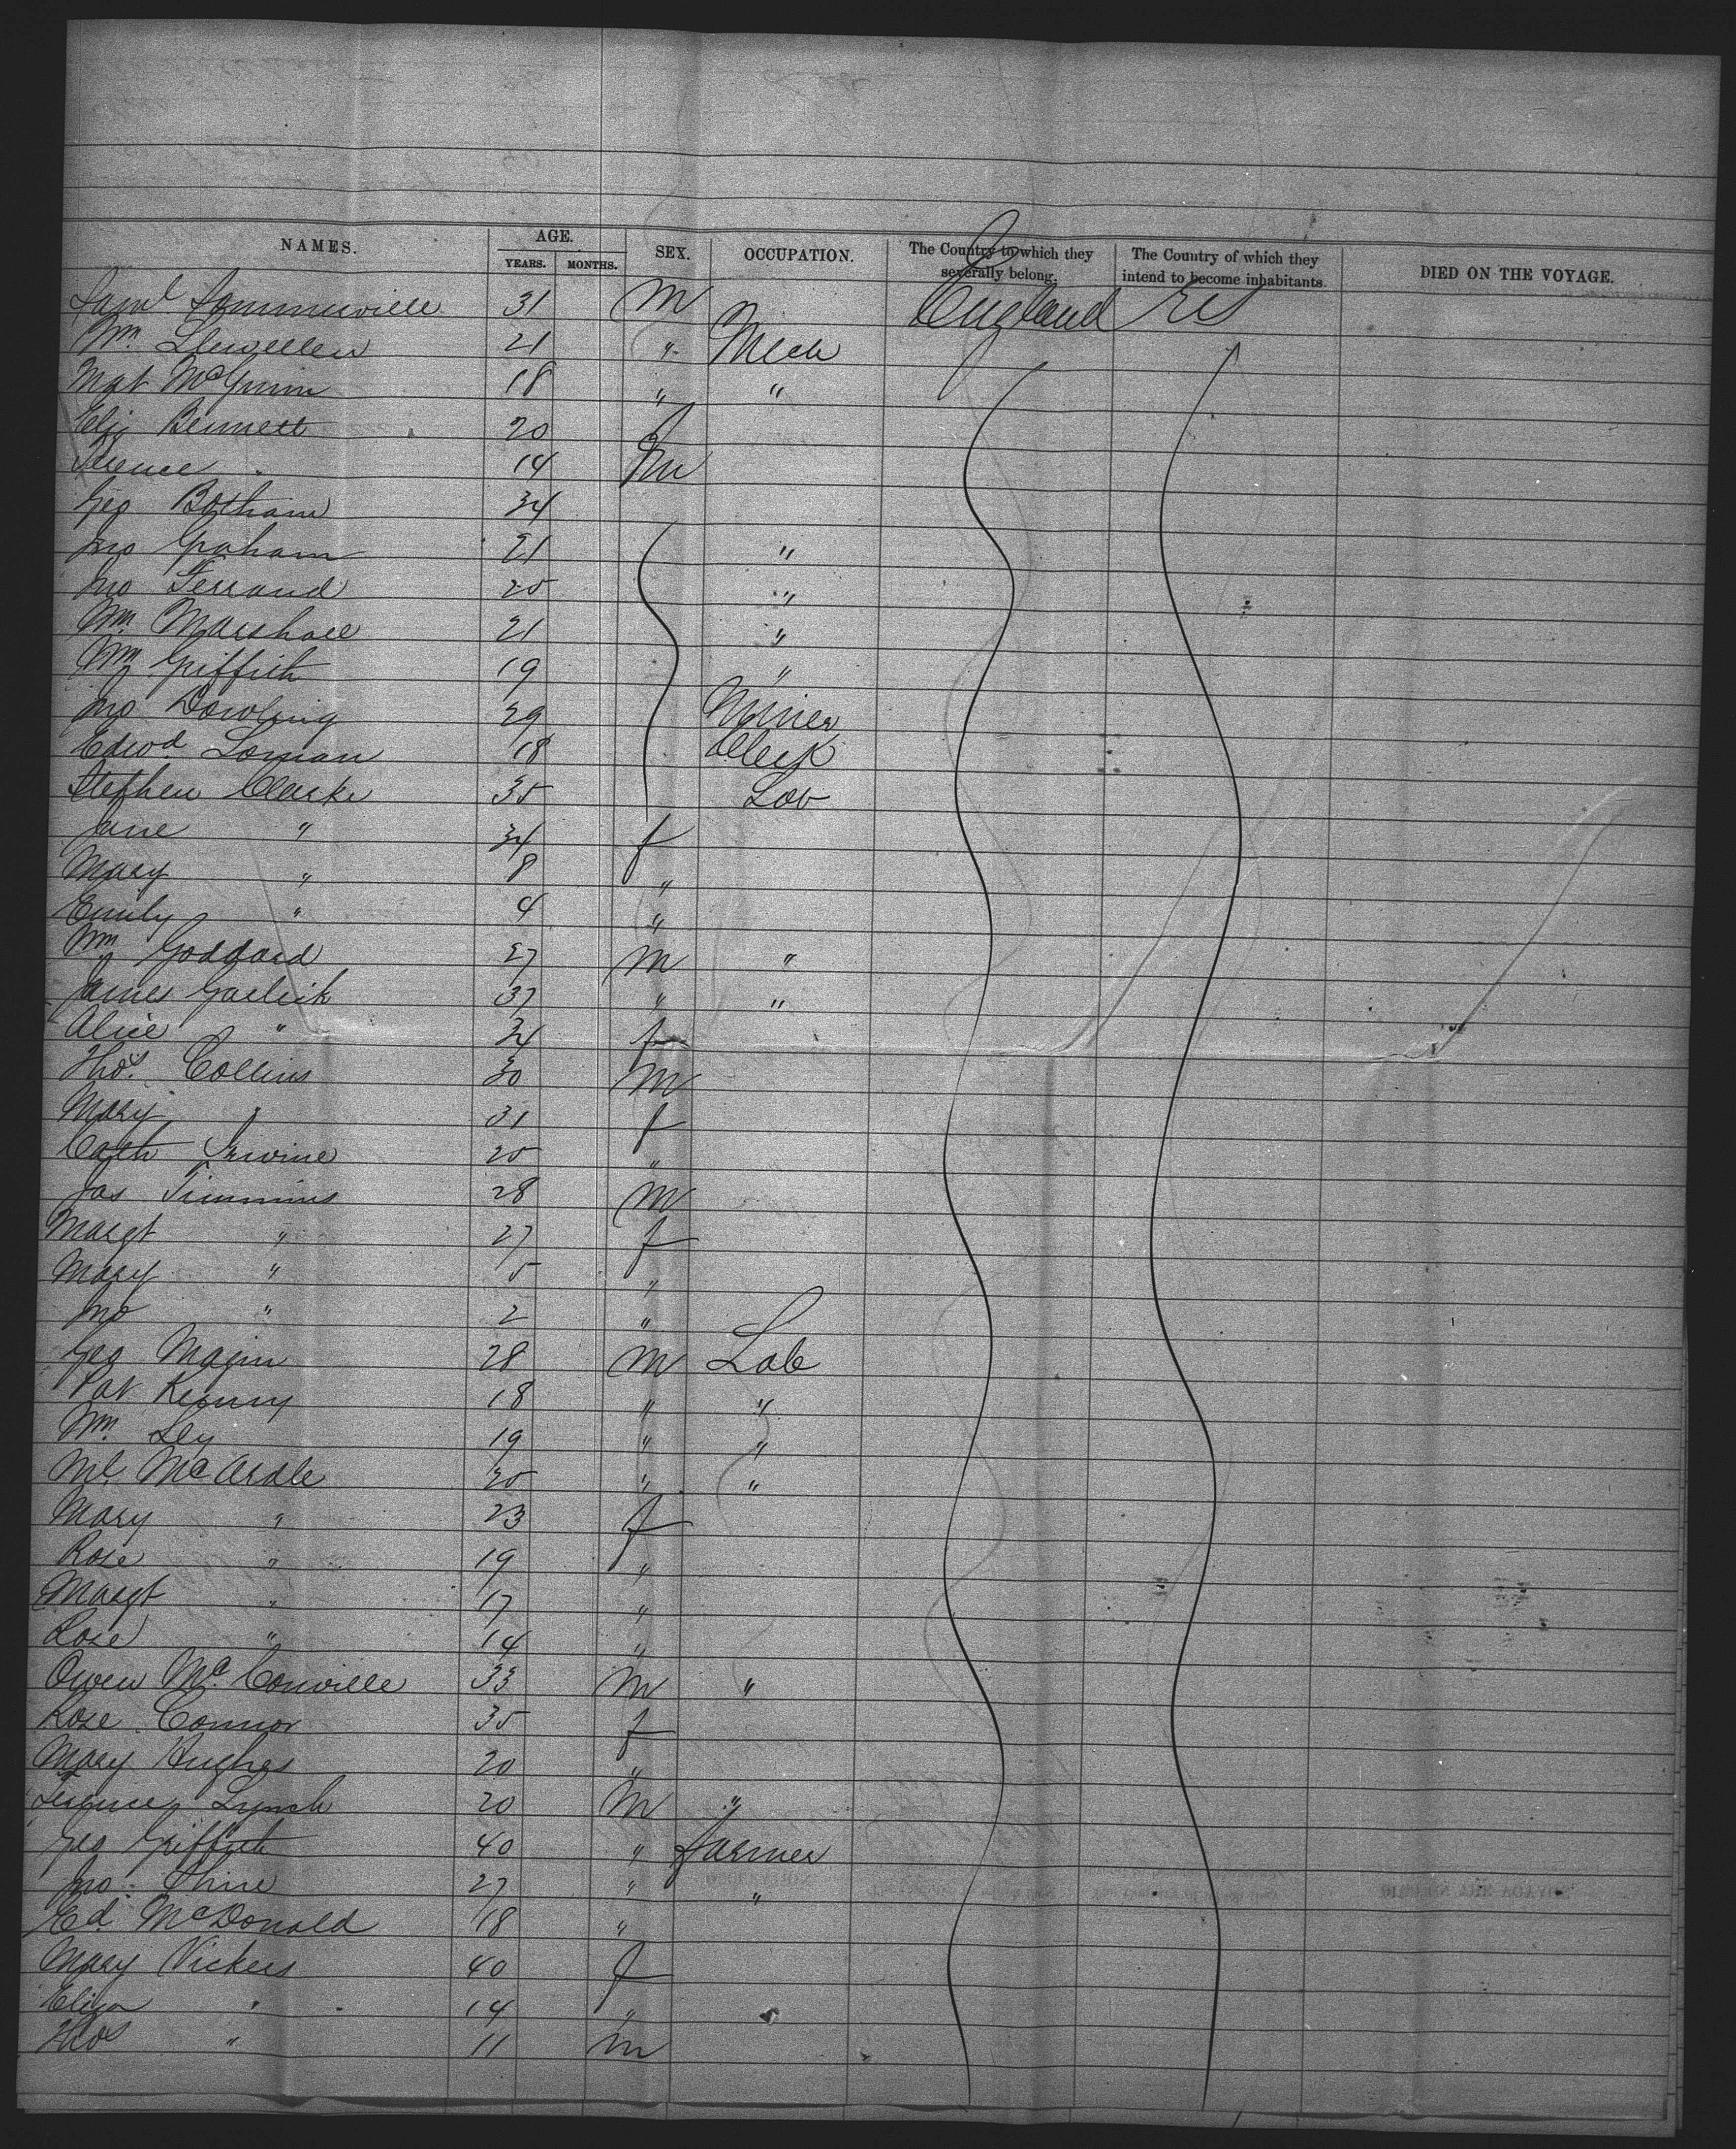 NAMES. AGE. YEARS. MONTHS. SEX. OCCUPATION. The Country to which they severally belong. The Country of which they intend to become inhabitants. DIED ON THE VOYAGE.
Saml Sommerville 31 M England US
Wm. Llewellen 21 " Mech
Mgt McGinn 18 " "
Eliz Bennett 20 f
Terence " 14 M
Geo Botham 34
Jno Graham 21 "
Jno Ferrand 25 "
Wm Marshall 21 "
Wm Griffith 19 "
Jno Dowling 29 Miner
Edwd Loman 18 Clerk
Stephen Clarke 35 Lab
Jane " 34 f
Mary " 8 "
Emily " 4 "
Wm Goddard 27 M "
James Garlick 37 " "
Alice " 34 f
Thos. Collins 30 M
Mary " 31 f
Cath Irvine 25 "
Jas Timmins 28 M
Margt " 27 f
Mary " 5 "
Jno " 2 "
Geo Magin 28 M Lab
Pat 18 " "
Wm. Ley 19 " "
Ml McArdle 25 " "
Mary " 23 f
Rose " 19 "
Margt " 17 "
Rose " 14 "
Owen McConville 33 M "
Rose Connor 35 f
Mary Hughes 20 "
Terence Lynch 20 M "
Geo Griffith 40 " farmer
Jno. 27 " "
Ed. McDonald 18 "
Mary Vickers 40 f
Eliza " 14 "
Thos " 11 M